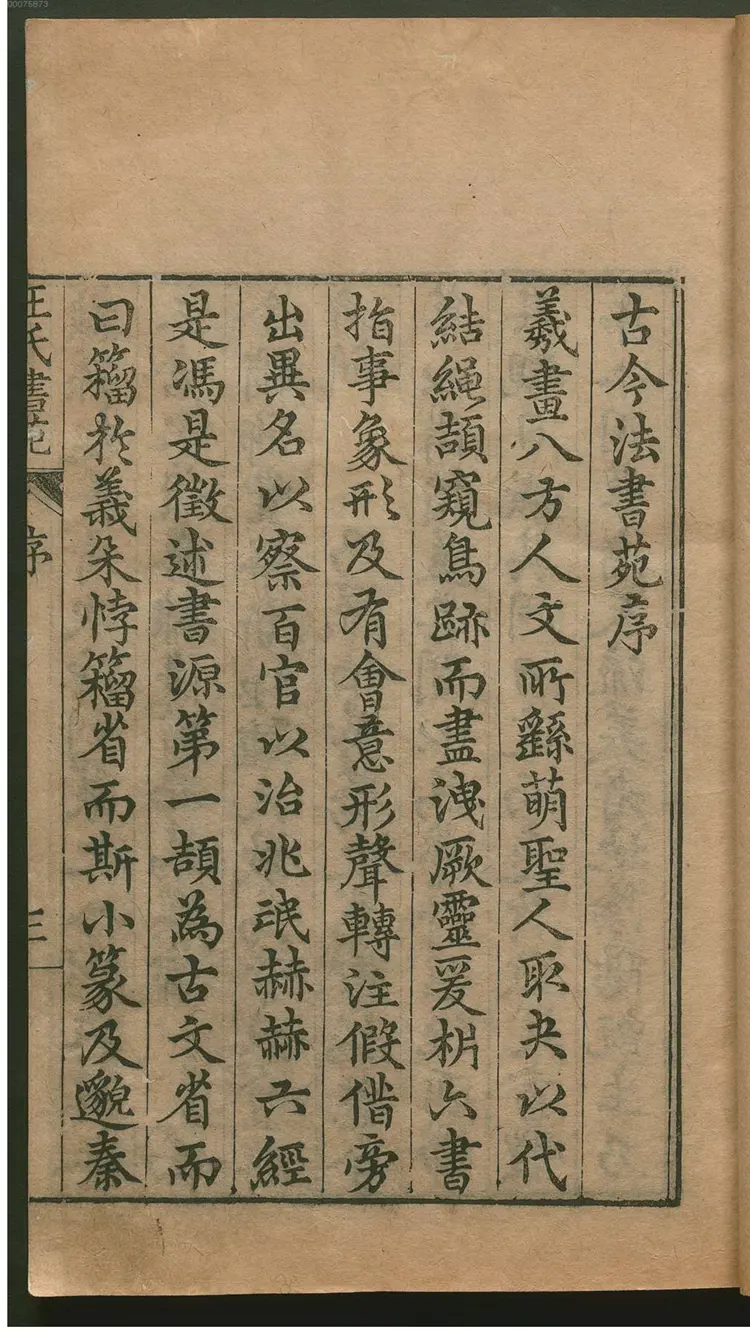 古今法書苑序
羲畫八方人文所繇萌聖人取夬以代
結繩頡窺鳥跡而盡洩厥靈爰析六書
指事象形及有會意形聲轉注假借旁
出異名以察百官以治兆氓赫赫六經
是馮是徵述書源第一頡為古文省而
曰籀於義朵悖籀省而斯小篆及邈秦
王氏書苑
序
三
00075873